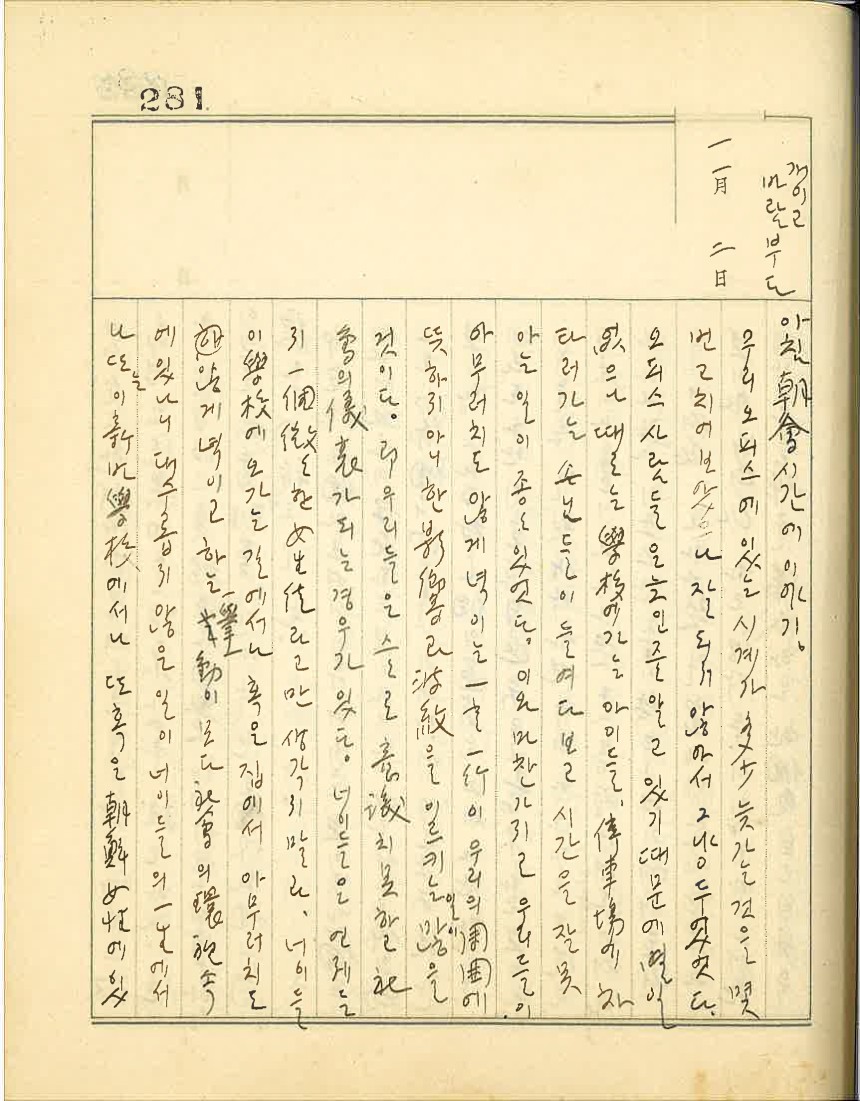 281
개이고
바람부다
一一月 二日
아침 朝會시간에 이야기。
우리 오피스에 있는 시계가 多少 늦가는 것을 몇
번 고치여 보앗으나 잘 되지 않아서 그냥 두엇엇다.
오피스 사람들은 늦인줄 알고 있기 때문에 別일
없으나 때로는 學校에 가는 아이들, 停車場에 차
타러 가는 손님들이 들여다보고 시간을 잘못
아는 일이 종종 있엇다。 이와 마찬가지로 우리들이
아무러치도 않게 녁이는 一言一行이 우리의 周圍에
뜻하지 아니한 影響과 波紋을 이르키는 일이 많을
것이다。 即 우리들은 스스로 意識치 못하고 社
會의 儀表가 되는 경우가 있다。 너이들은 언제든
지 一個 微々한 女生徒라고만 생각지 말라, 너이들
이 學校에 오가는 길에서나 혹은 집에서 아무러치도
않게 녁이고 하는 一擧一動이 모다 社會의 環視속
에 있나니 대수롭지 않은 일이 너이들의 一生에서
나 또는 이 學校에서나 또 혹은 朝鮮女性에 있